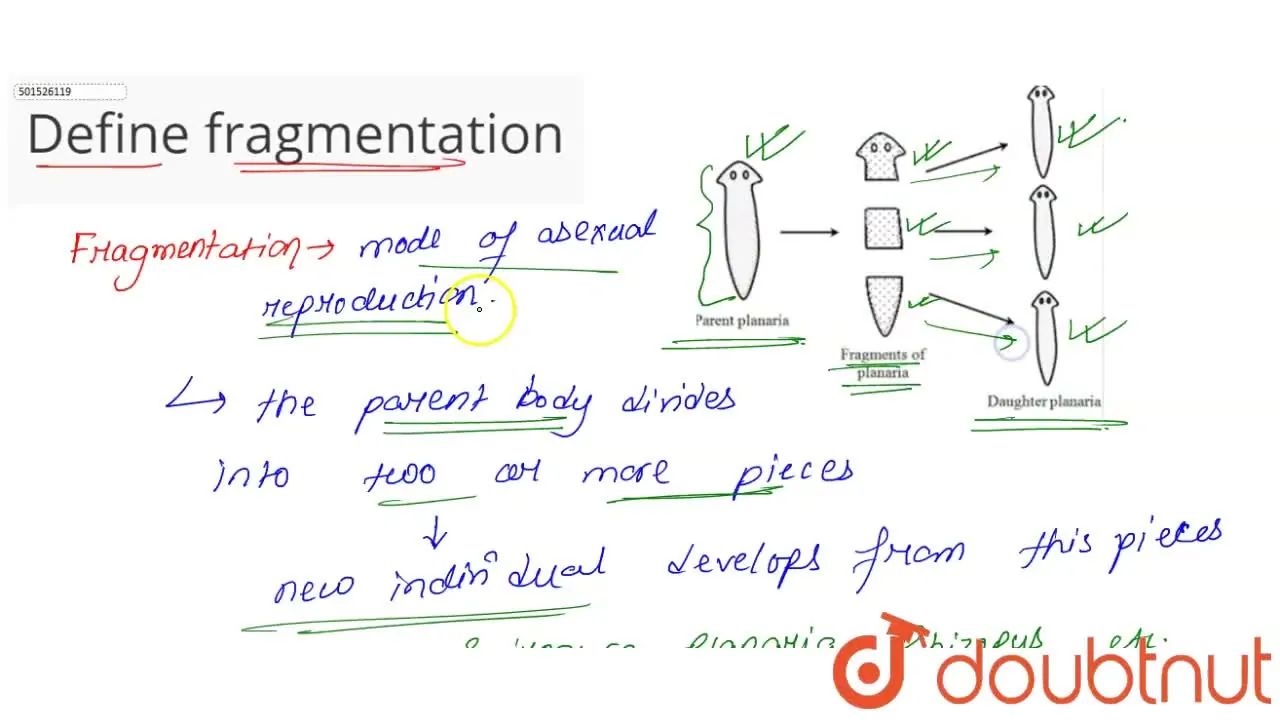 501526119
Define fragmentation
Fragmentation → mode of asexual
reproduction.
↳ the parent body divides
into two or more pieces
↓
new individual develops from this pieces
planaria
etc.
Parent planaria
Fragments of
planaria
Daughter planaria
doubtnut